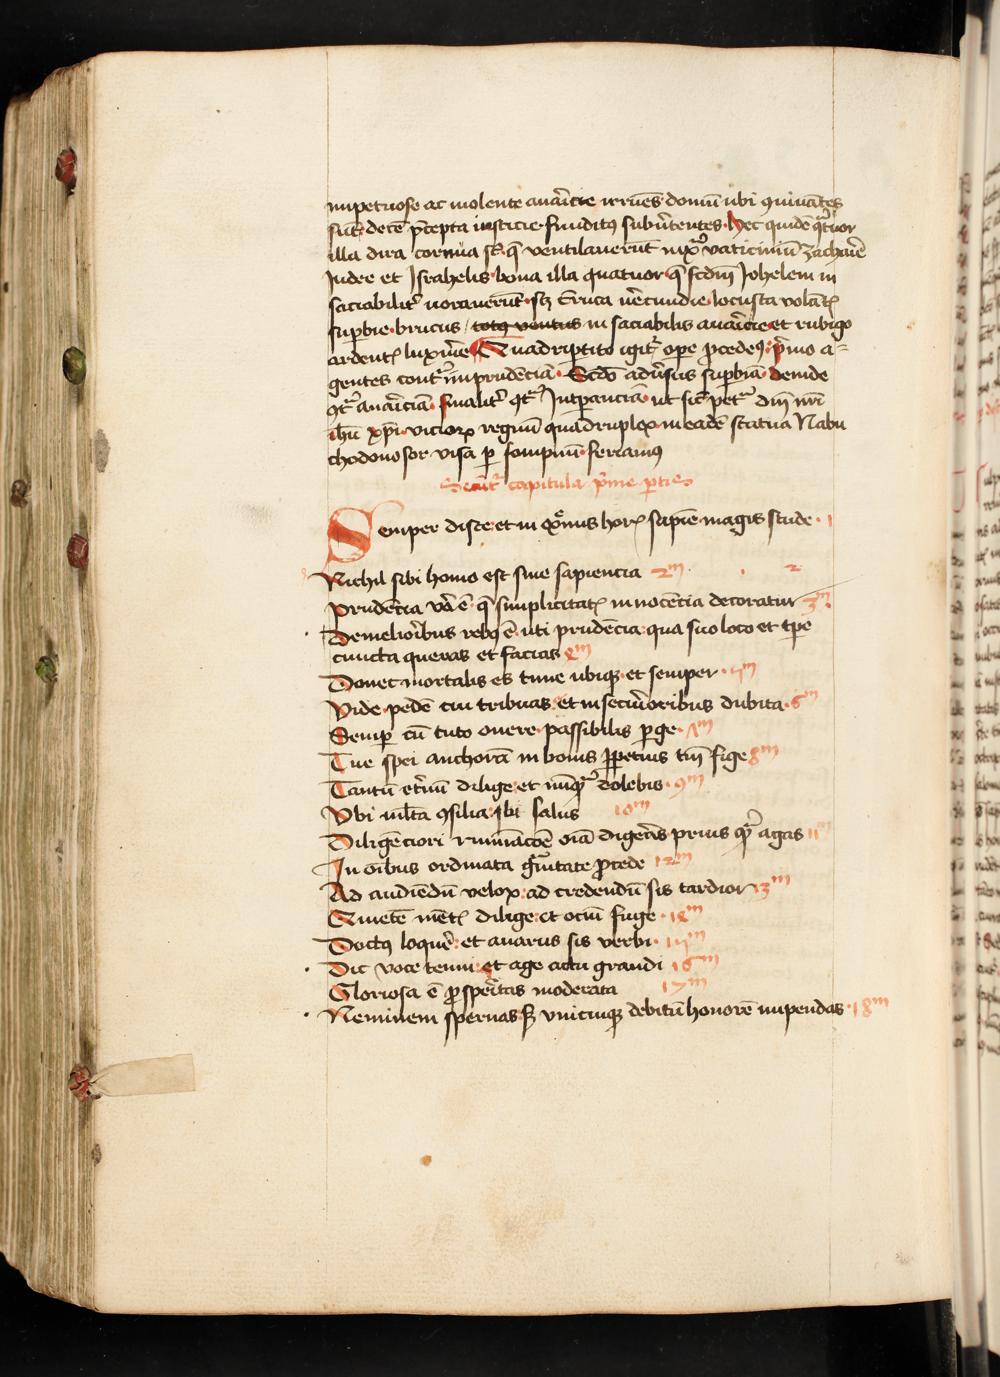 impetuose ac violente avaricie irruēs domū ubi quinātes
sūt decē p̄cepta iusticie funditus subv̄tentes. hec quidē qᷓtuor
illa dira cornua sūt q̄ ventilaverūt iuxᷓ vaticiniū Zacharie
Iudee et Israhelis bona illa quatuor q̄ scdm̄ Johelem in
saciabilit̄ voraverūt. scz Eruca locusta
supbie. brucus / totꝯ ventus in saciabilis avaricie et rubigo
ardentꝭ luxurie Quadriptito igit̄ ope p̄cedēs p̄mo a=
gentes contᷓ imprudēciā. Scdo adv̄sus supbiā deinde
9tᷓ avariciā finalit̄ 9tᷓ Intpanciā ut sic dn̄i nr̄i
ih̄u xp̄i victorꝝ regnū quadruplex in eadē statua Nabu
chodonosor visa p sompniū feriamꝰ
Secūtᷣ capitula p̄me p̄tis
Semper disce: et in horꝭ sapiē magis stude. 1
Nichil sibi homo est sine sapiencia 2m 2
Prudēcia vā ē q̄ simplicitatꝭ innocēcia decoratur 3m
De melioribus rebꝰ ē uti prudēcia: qua suo loco et tpe
cuncta queras et facias 4m
Donec mortalis es time ubiqꝫ et semper. 5m
Vide pedē cui tribuas: et in securioribus dubita. 6m
Semp cū tuto onere passibilis pge. 7m
Tue spei anchorā in bonis ppetuis tm̄ fige 8m
Tantū et̄nū dilige: et nūqᷓ dolebis. 9m
Vbi ml̄ta 9silia: ibi salus 10m
Diligēciori ruminacōe oīa digeras prius qᷓ agas 11m
In oībus ordinata gᷓvitate p̄cede 12m
Ad audiēdū velox: ad credendū sis tardior 13m
Quietē mētꝭ dilige: et ociū fuge. 14m
Doctꝰ loquē: et avarus sis verbi. 15m
Dic voce tenui: et age actu grandi 16m
Gloriosa ē p̄speritas moderata 17m
Neminem spernas: sꝫ unicuiqꝫ debitū honorē inpendas. 18m